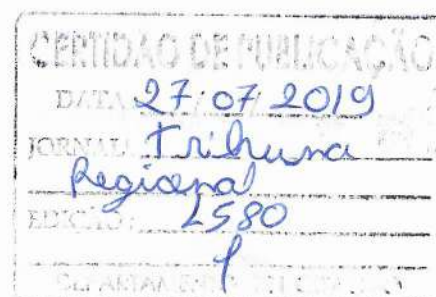 CERTIDÃO DE PUBLICAÇÃO
DATA 27/07/2019
JORNAL: Tribuna
Regional
EDIÇÃO: 2580